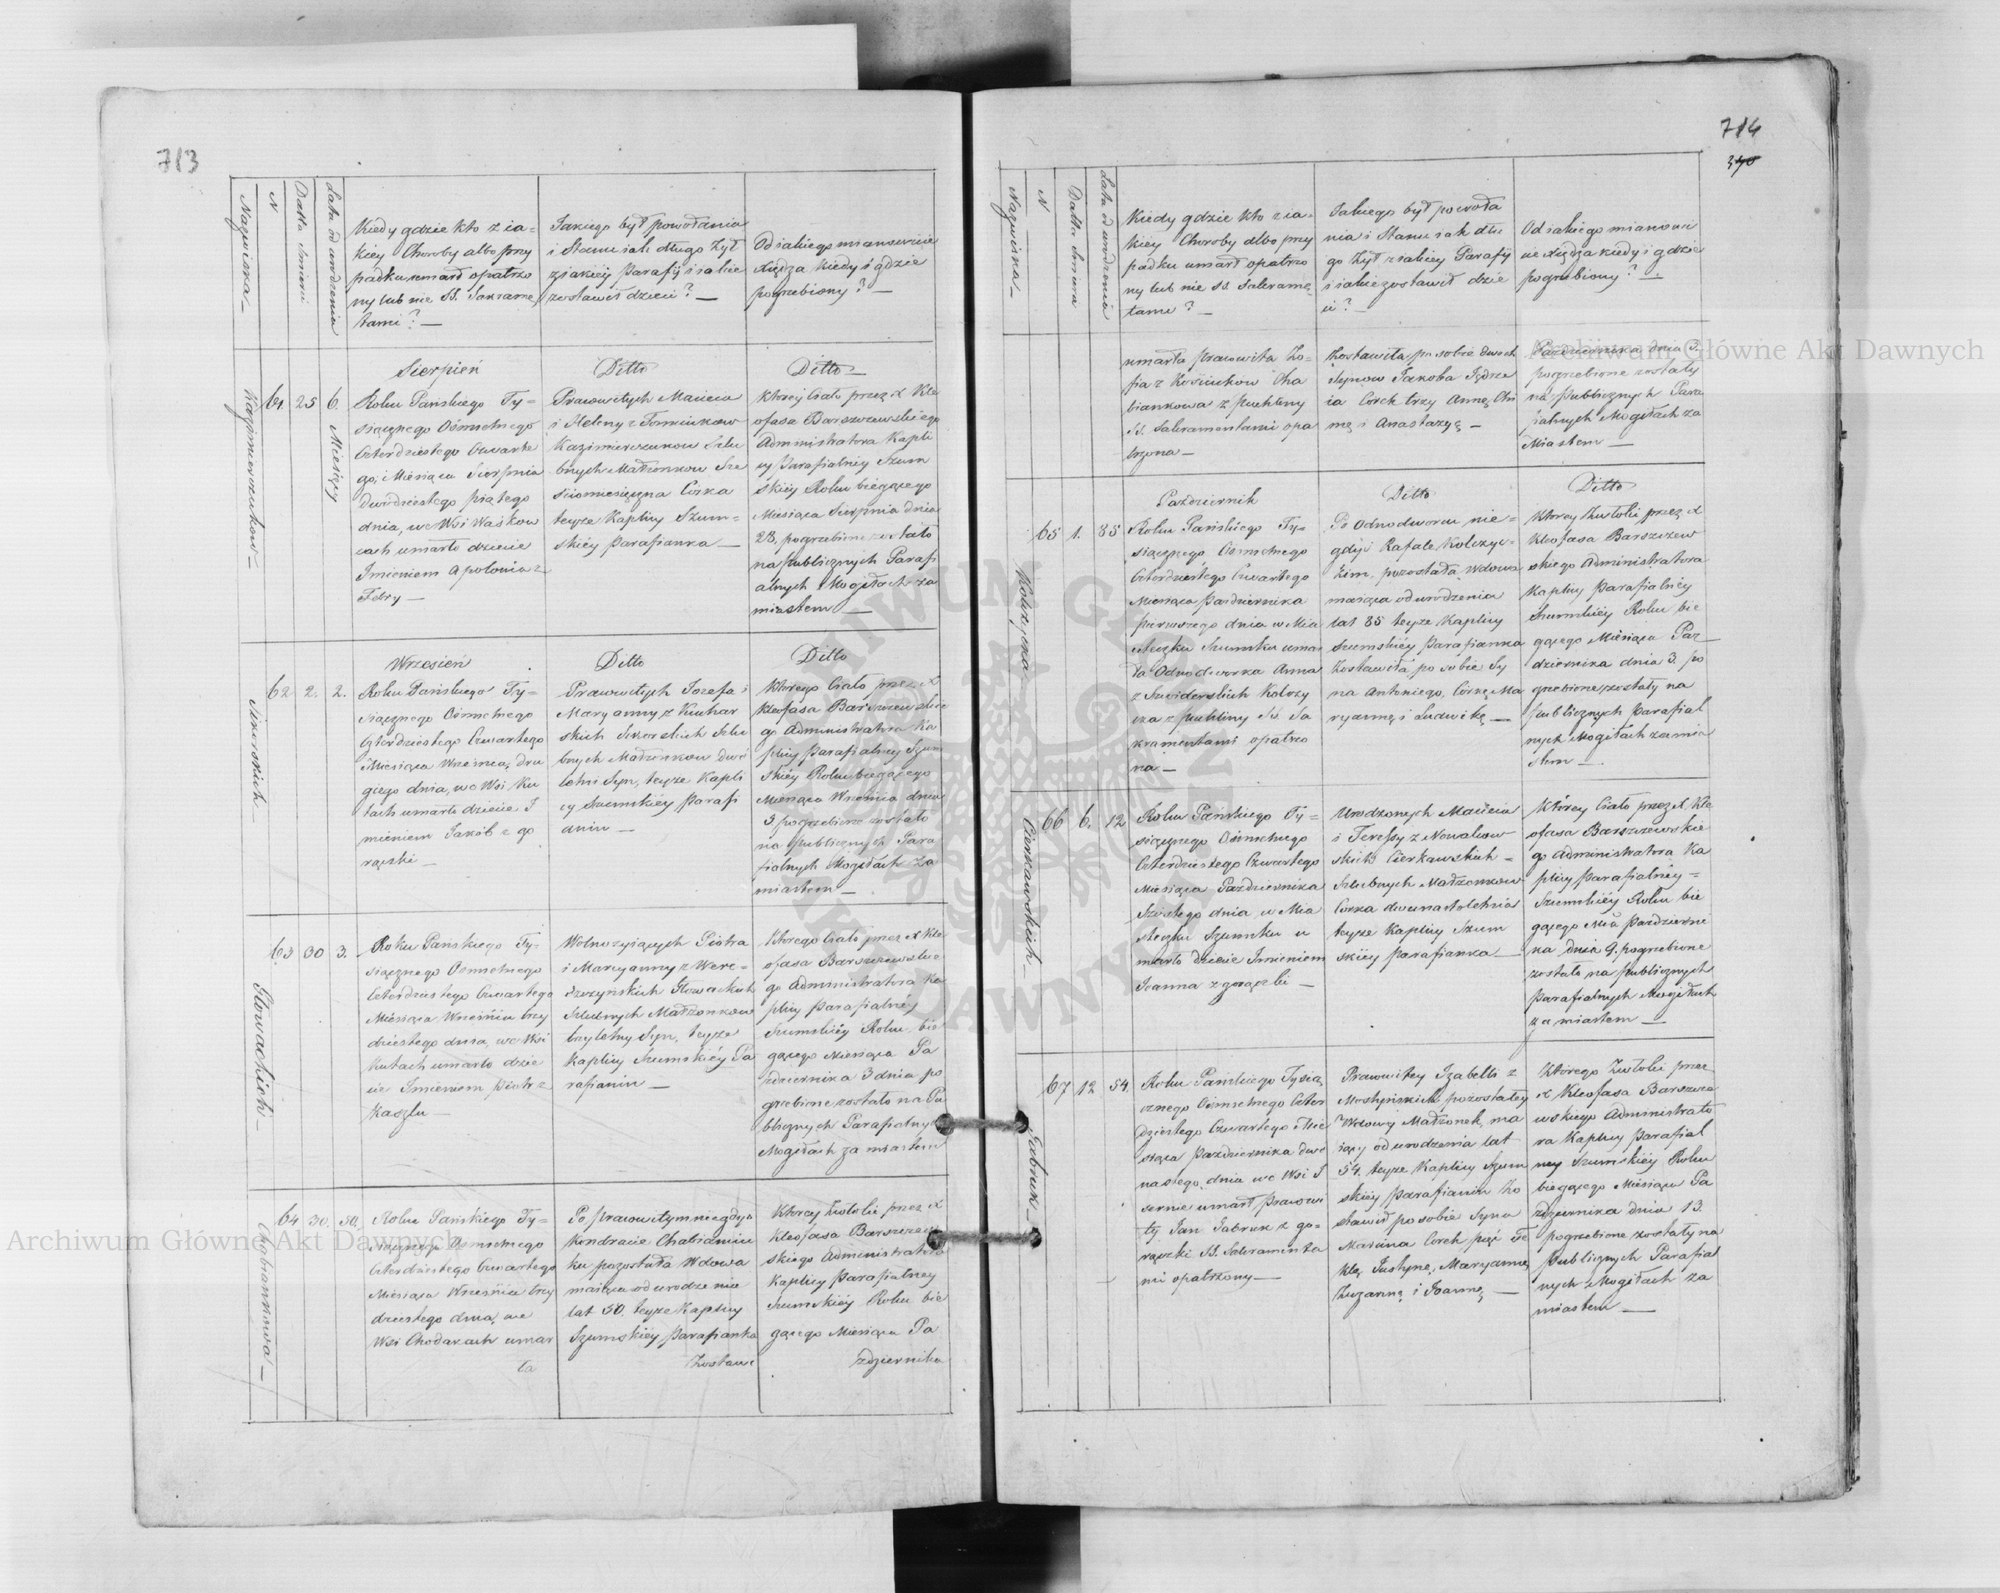 713
Nazwiska –
N
Datta Śmierci
Lata od urodzenia
Kiedy gdzie kto z ia-
kiey Choroby albo przy
padku umarł opatrzo
ny lub nie SS. Sakramę
tami? –
Jakiego był powołania
i Stanu iak długo żył
z iakiey Parafij i iakie
zostawił dzieci? –
Od iakiego mianowicie
Xiędza kiedy i gdzie
pogrzebiony? –
Sierpień
Ditto
Ditto –
61. 25 6. Miesięcy
Roku Pańskiego Ty-
siącznego Ośmsetnego
Czterdziestego Czwarte
go, Miesiąca Sierpnia
Dwudziestego piątego
dnia, we Wsi Waśkow
cach umarło dziecie
Imieniem Apolonia z
Febry –
Prawowitych Macieia
i Heleny z Tomiukow
Kazimierczukow Szlu
bnych Małżonkow Sze
ściomiesięczna Córka
teyże Kaplicy Szum-
skiey Parafianka –
Ktorey Ciało przez X Kle
ofasa Barszczewskiego
Administratora Kapli
cy Parafialney Szum
skiey Roku bieżącego
Miesiąca Sierpnia dnia
28, pogrzebione zostało
na publicznych Parafi
alnych Mogiłach za
miastem –
Wrzesień
Ditto
Ditto
62 2. 2.
Roku Pańskiego Ty-
siącznego Ośmsetnego
Czterdziestego Czwartego
Miesiąca Września dru
giego dnia, we Wsi Ku
tach umarło dziecie I
mieniem Jakób z go
rączki –
Prawowitych Jozefa i
Maryanny z Kuchar
skich Sikorskich Szlu
bnych Małżonkow dwó
letni Syn, teyże Kapli
cy Szumskiey Parafi
anin –
Ktorego Ciało przez X
Kleofasa Barszczewskie
go Administratora Ka
plicy Parafialney Szum
skiey Roku bieżącego
Miesiąca Września dnia
3 pogrzebione zostało
na publicznych Para
fialnych Mogiłach za
miastem –
63 30 3.
Słowackich –
Roku Pańskiego Ty-
siącznego Ośmsetnego
Czterdziestego Czwartego
Miesiąca Września trzy
dziestego dnia, we Wsi
Kutach umarło dzie
cie Imieniem Piotr z
Kaszlu –
Wolnożyiących Piotra
i Maryanny z Were-
szczyńskich Słowackich
Szlubnych Małżonkow
trzyletny Syn, teyże
Kaplicy Szumskiey Pa
rafianin –
Ktorego Ciało przez X Kle
ofasa Barszczewskie
go Administratora Ka
plicy Parafialney
Szumskiey Roku bie
gącego Miesiąca Pa
ździernika 3 dnia po
grzebione zostało na Pu
blicznych Parafialnych
Mogiłach za miastem
64 30. 50.
Chabiankowa –
Roku Pańskiego Ty-
siącznego Ośmsetnego
Czterdziestego Czwartego
Miesiąca Września trzy
dziestego dnia, we
Wsi Chodakach umar
ła
Po prawowitym niegdyś
Kondracie Chabianiu
ku pozostała Wdowa
maiąca od urodzenia
lat 50. teyże Kaplicy
Szumskiey Parafianka
Zostawi
Ktorey Zwłoki przez X
Kleofasa Barszczew
skiego Administratora
Kaplicy Parafialney
Szumskiey Roku bie
gącego Miesiąca Pa
ździernika
714
Nazwiska –
N
Datta Śmierci
Lata od urodzenia
Kiedy gdzie kto z ia-
kiey Choroby albo przy
padku umarł opatrzo
ny lub nie SS. Sakramę
tami? –
Jakiego był powoła
nia i Stanu iak dłu
go żył z iakiey Parafij
i iakie zostawił dzie
ci? –
Od iakiego mianowi
cie Xiędza kiedy i gdzie
pogrzebiony? –
umarła prawowita Zo-
fia z Kościukow Cha
biankowa z puchliny
SS. Sakramentami opa
trzona –
Zostawiła po sobie dwoch
Synow Jakoba Jędrze
ia Corek trzy Annę Chi
mę i Anastazyę –
Października dnia 3.
pogrzebione zostały
na publicznych Para
fialnych Mogiłach za
Miastem –
Październik
Ditto
Ditto
65 1. 85
Roku Pańskiego Ty-
siącznego Ośmsetnego
Czterdziestego Czwartego
Miesiąca Października
pierwszego dnia w Mia
steczku Szumsku umar
ła Odnodworka Anna
z Swiderskich Kolczy
cka z puchliny SS. Sa
kramentami opatrzo
na –
Po Odnodworcu nie-
gdyś Rafale Kolczyc-
kim, pozostała Wdowa
maiąca od urodzenia
lat 85 teyże Kaplicy
Szumskiey Parafianka
Zostawiła po sobie Sy
na Antoniego, Córkę Ma
ryannę i Ludwikę –
Ktorey Zwłoki przez X
Kleofasa Barszczew
skiego Administratora
Kaplicy Parafialney
Szumskiey Roku bie
gącego Miesiąca Paź
dziernika dnia 3. po
grzebione zostały na
publicznych Parafial
nych Mogiłach za mia
stem –
66 6. 12
Cierkawskich –
Roku Pańskiego Ty-
siącznego Ośmsetnego
Czterdziestego Czwartego
Miesiąca Października
Szóstego dnia w Mia
steczku Szumsku u
marło dziecie Imieniem
Joanna z gorączki –
Urodzonych Macieia
i Teressy z Nowakow
skich Cierkawskich –
Szlubnych Małżonkow
Córka dwunastoletnia
teyże Kaplicy Szum
skiey Parafianka –
Którey Ciało przez X. Kle
ofasa Barszczewskie
go Administratora Ka
plicy Parafialney –
Szumskiey Roku bie
gącego Mca Październi
ka dnia 9. pogrzebione
zostało na publicznych
Parafialnych Mogiłach
za miastem –
67 12 54.
Jabruk –
Roku Pańskiego Tysią
cznego Ośmsetnego Czter
dziestego Czwartego Mie
siąca Października dwó
nastego dnia we Wsi I
sernie umarł Prawowi
ty Jan Jabruk z go-
rączki SS. Sakramenta
mi opatrzony –
Prawowitey Izabelli z
pozostałey
Wdowy Małżonek, ma
iący od urodzenia lat
54. teyże Kaplicy Szum
skiey Parafianin Zo
stawił po sobie Syna
Corek pięć Te
klę, Justynę, Maryannę
Zuzannę i Joannę –
Którego Zwłoki przez
X Kleofasa Barszcze
wskiego Administrato
ra Kaplicy Parafial
ney Szumskiey Roku
biegącego Miesiąca Pa
ździernika dnia 13.
pogrzebione zostały na
Publicznych Parafial
nych Mogiłach za
miastem –
Archiwum Główne Akt Dawnych
Archiwum Główne Akt Dawnych